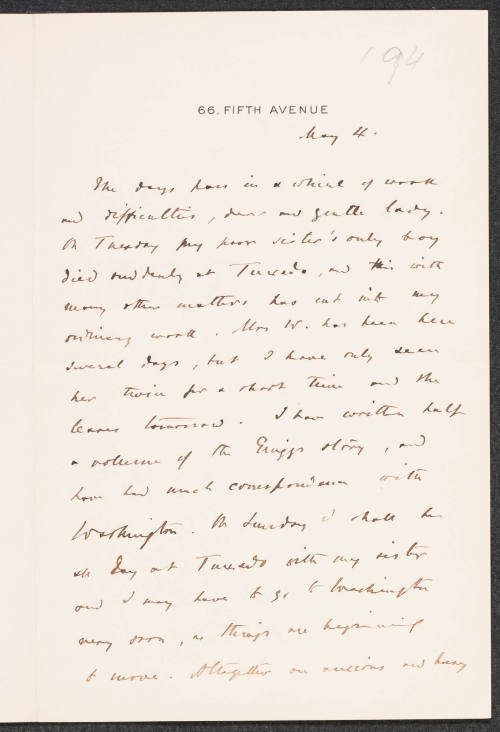 194
66, FIFTH AVENUE
May 4.
The days pass in a whirl of work
and difficulties, dear and gentle lady.
On Tuesday my poor sister's only boy
died suddenly at Tuxedo, and this with
many other matters has cut into my
ordinary work. Mrs W. has been here
several days, but I have only seen
her twice for a short time and she
leaves tomorrow. I have written half
a volume of the Griggs story, and
have had much correspondence with
Washington. On Sunday I shall be
all day at Tuxedo with my sister
and I may have to go to Washington
very soon, as things are beginning
to move. Altogether an anxious and heavy